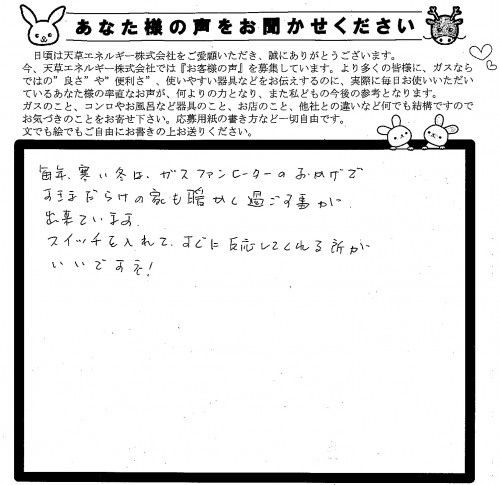 あなた様の声をお聞かせください
日頃は天草エネルギー株式会社をご愛顧いただき、誠にありがとうございます。
今、天草エネルギー株式会社では『お客様の声』を募集しています。より多くの皆様に、ガスなら
ではの”良さ”や”便利さ”、使いやすい器具などをお伝えするのに、実際に毎日お使いいただい
ているあなた様の率直なお声が、何よりの力となり、また私どもの今後の参考となります。
ガスのこと、コンロやお風呂など器具のこと、お店のこと、他社との違いなど何でも結構ですので
お気づきのことをお寄せ下さい。応募用紙の書き方など一切自由です。
文でも絵でもご自由にお書きの上お送りください。
毎年、寒い冬は、ガスファンヒーターのおかげで
すきまだらけの家も暖かく過ごす事が
出来ています。
スイッチを入れて、すぐに反応してくれる所が
いいですネ!